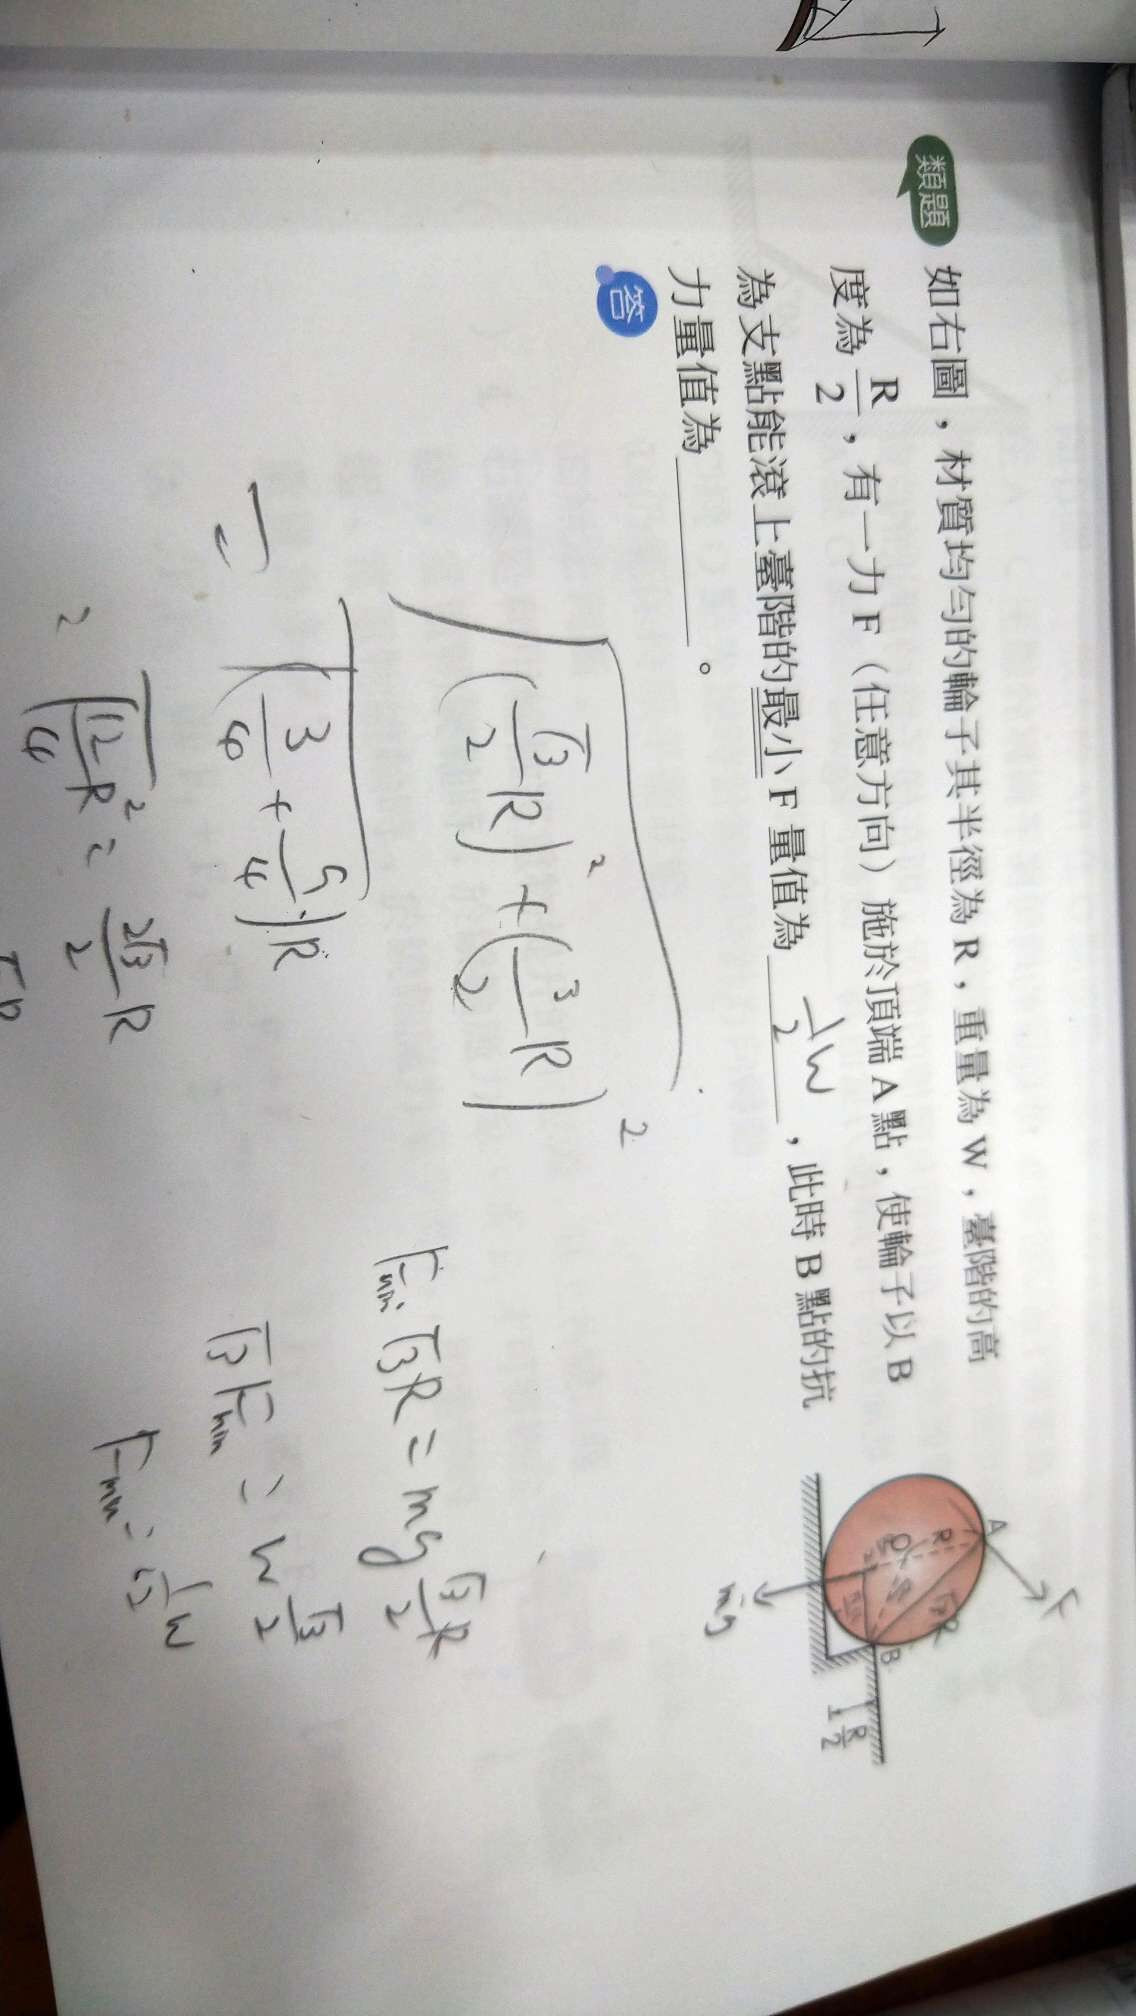 類題 如右圖，材質均勻的輪子其半徑為 R，重量為 W，臺階的高
度為 R/2，有一力 F（任意方向）施於頂端 A 點，使輪子以 B
為支點能滾上臺階的最小 F 量值為 1/2 W，此時 B 點的抗
力量值為______。
答
A
F
R
O
R
√3R
B
R/2
mg
√((√3/2 R)² + (3/2 R)²)
= √(3/4 + 9/4) R
= √(12/4 R²) = 2√3/2 R
Fmin · √3R = mg √3/2 R
√3 Fmin = W √3/2
Fmin = 1/2 W